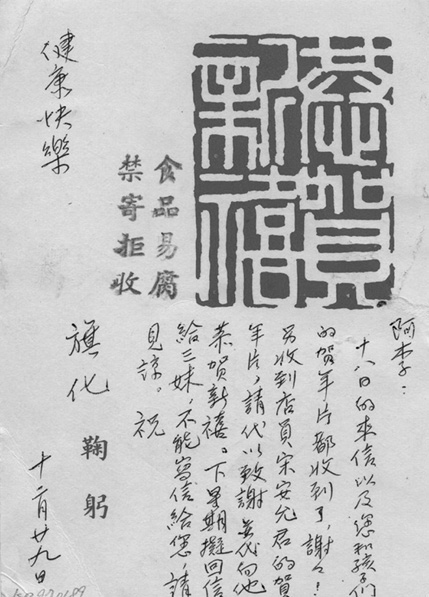 恭賀
新禧
食品易腐
禁寄拒收
阿李：
十八日的來信以及您和孩子們
的賀年片都收到了，謝々！
另收到店員宋安允君的賀
年片，請代以致謝並代向他
恭賀新禧。下星期擬回信
給三妹，不能寫信給您，請
見諒。祝
健康快樂
旗化 鞠躬
十二月廿九日